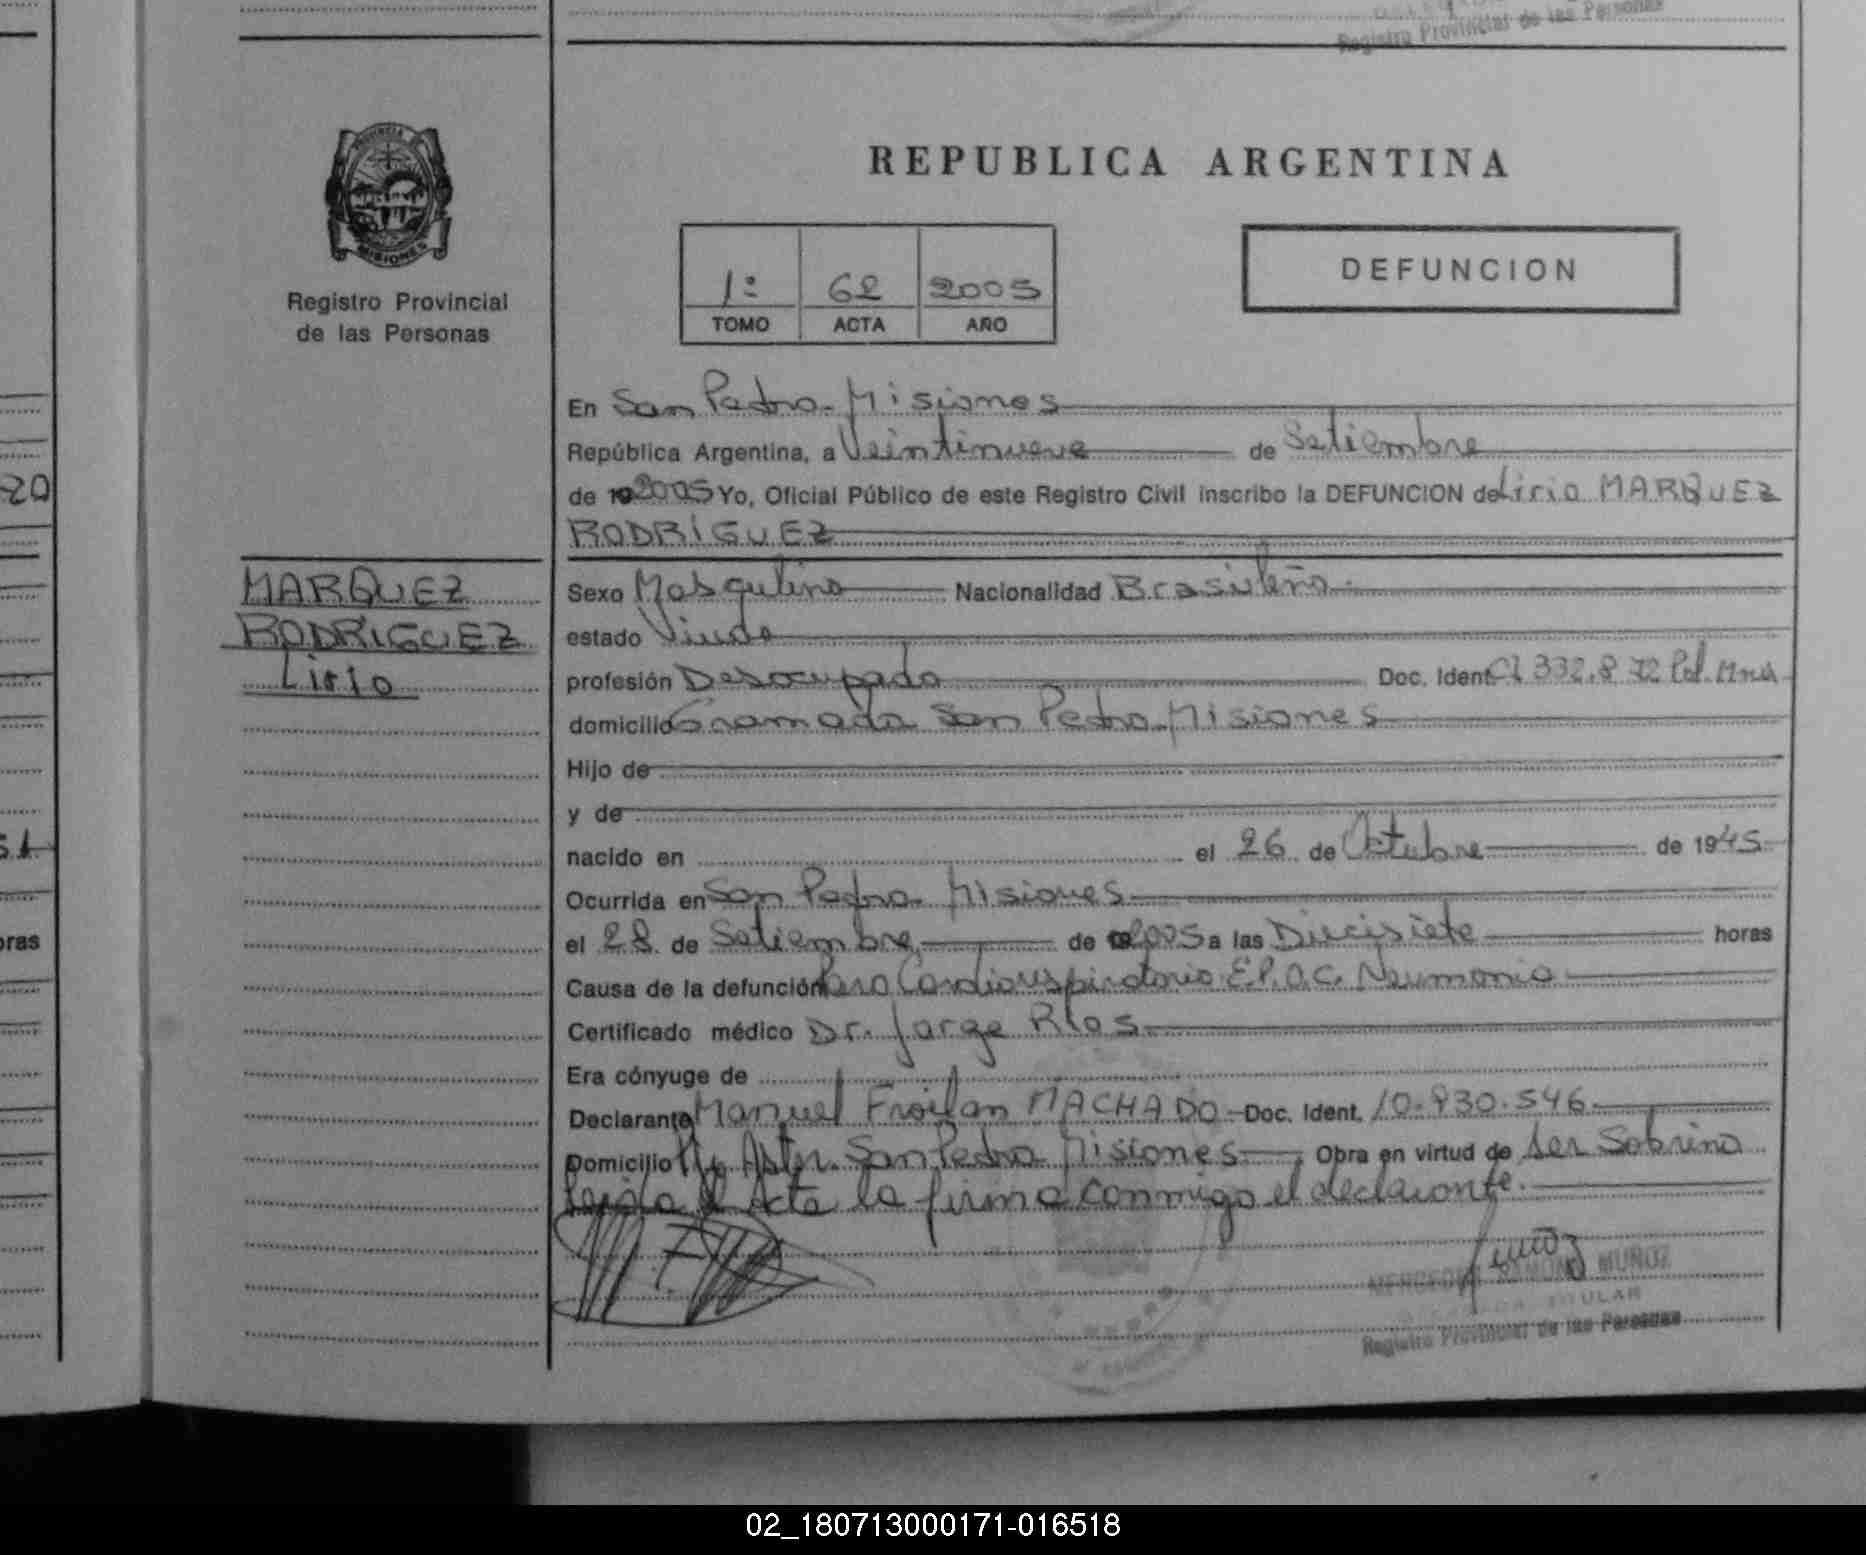 Registro Provincial de las Personas
20
51
oras
PROVINCIA DE
MISIONES
Registro Provincial
de las Personas
REPUBLICA ARGENTINA
1º 62 2005
TOMO ACTA AÑO
DEFUNCION
En San Pedro-Misiones
República Argentina, a Veintinueve de Setiembre
de 19 2005 Yo, Oficial Público de este Registro Civil inscribo la DEFUNCION de Lirio MARQUEZ
RODRÍGUEZ
MARQUEZ
RODRIGUEZ
Lirio
Sexo Masculino Nacionalidad Brasileña.
estado Viudo
profesión Desocupado Doc. Ident. CI 332.872 Pol. Mnes
domicilio Gramado San Pedro-Misiones
Hijo de
y de
nacido en el 26 de Octubre de 1945
Ocurrida en San Pedro-Misiones
el 28 de Setiembre de 2005 a las Diecisiete horas
Causa de la defunción Paro Cardiorespiratorio E.P.O.C. Neumonia
Certificado médico Dr. Jorge Rios
Era cónyuge de
Declarante Manuel Froilan MACHADO Doc. Ident. 10.930.546
Domicilio San Pedro Misiones Obra en virtud de ser Sobrino
Leida el Acta la firma conmigo el declarante.
MERCEDES RAMONA MUÑOZ
TITULAR
Registro Provincial de las Personas
02_180713000171-016518